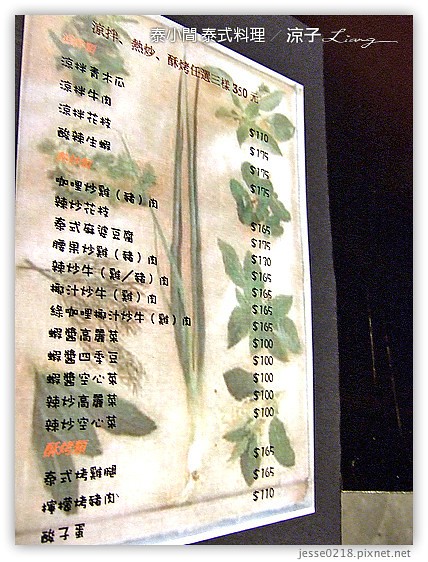 泰小閒 泰式料理 / 涼子 Liang
涼拌、熱炒、酥烤任選三樣 350 元
涼拌青木瓜 $110
涼拌牛肉 $175
涼拌花枝 $175
酸辣生蝦 $175
咖哩炒雞(豬)肉 $165
辣炒花枝 $175
泰式麻婆豆腐 $170
腰果炒雞(豬)肉 $165
辣炒牛(雞/豬)肉 $165
椰汁炒牛(雞)肉 $165
綠咖哩椰汁炒牛(雞)肉 $165
蝦醬高麗菜 $100
蝦醬四季豆 $100
蝦醬空心菜 $100
辣炒高麗菜 $100
辣炒空心菜 $100
酥烤類
泰式烤雞腿 $165
檸檬烤豬肉 $165
酸子蛋 $110
jesse0218.pixnet.net